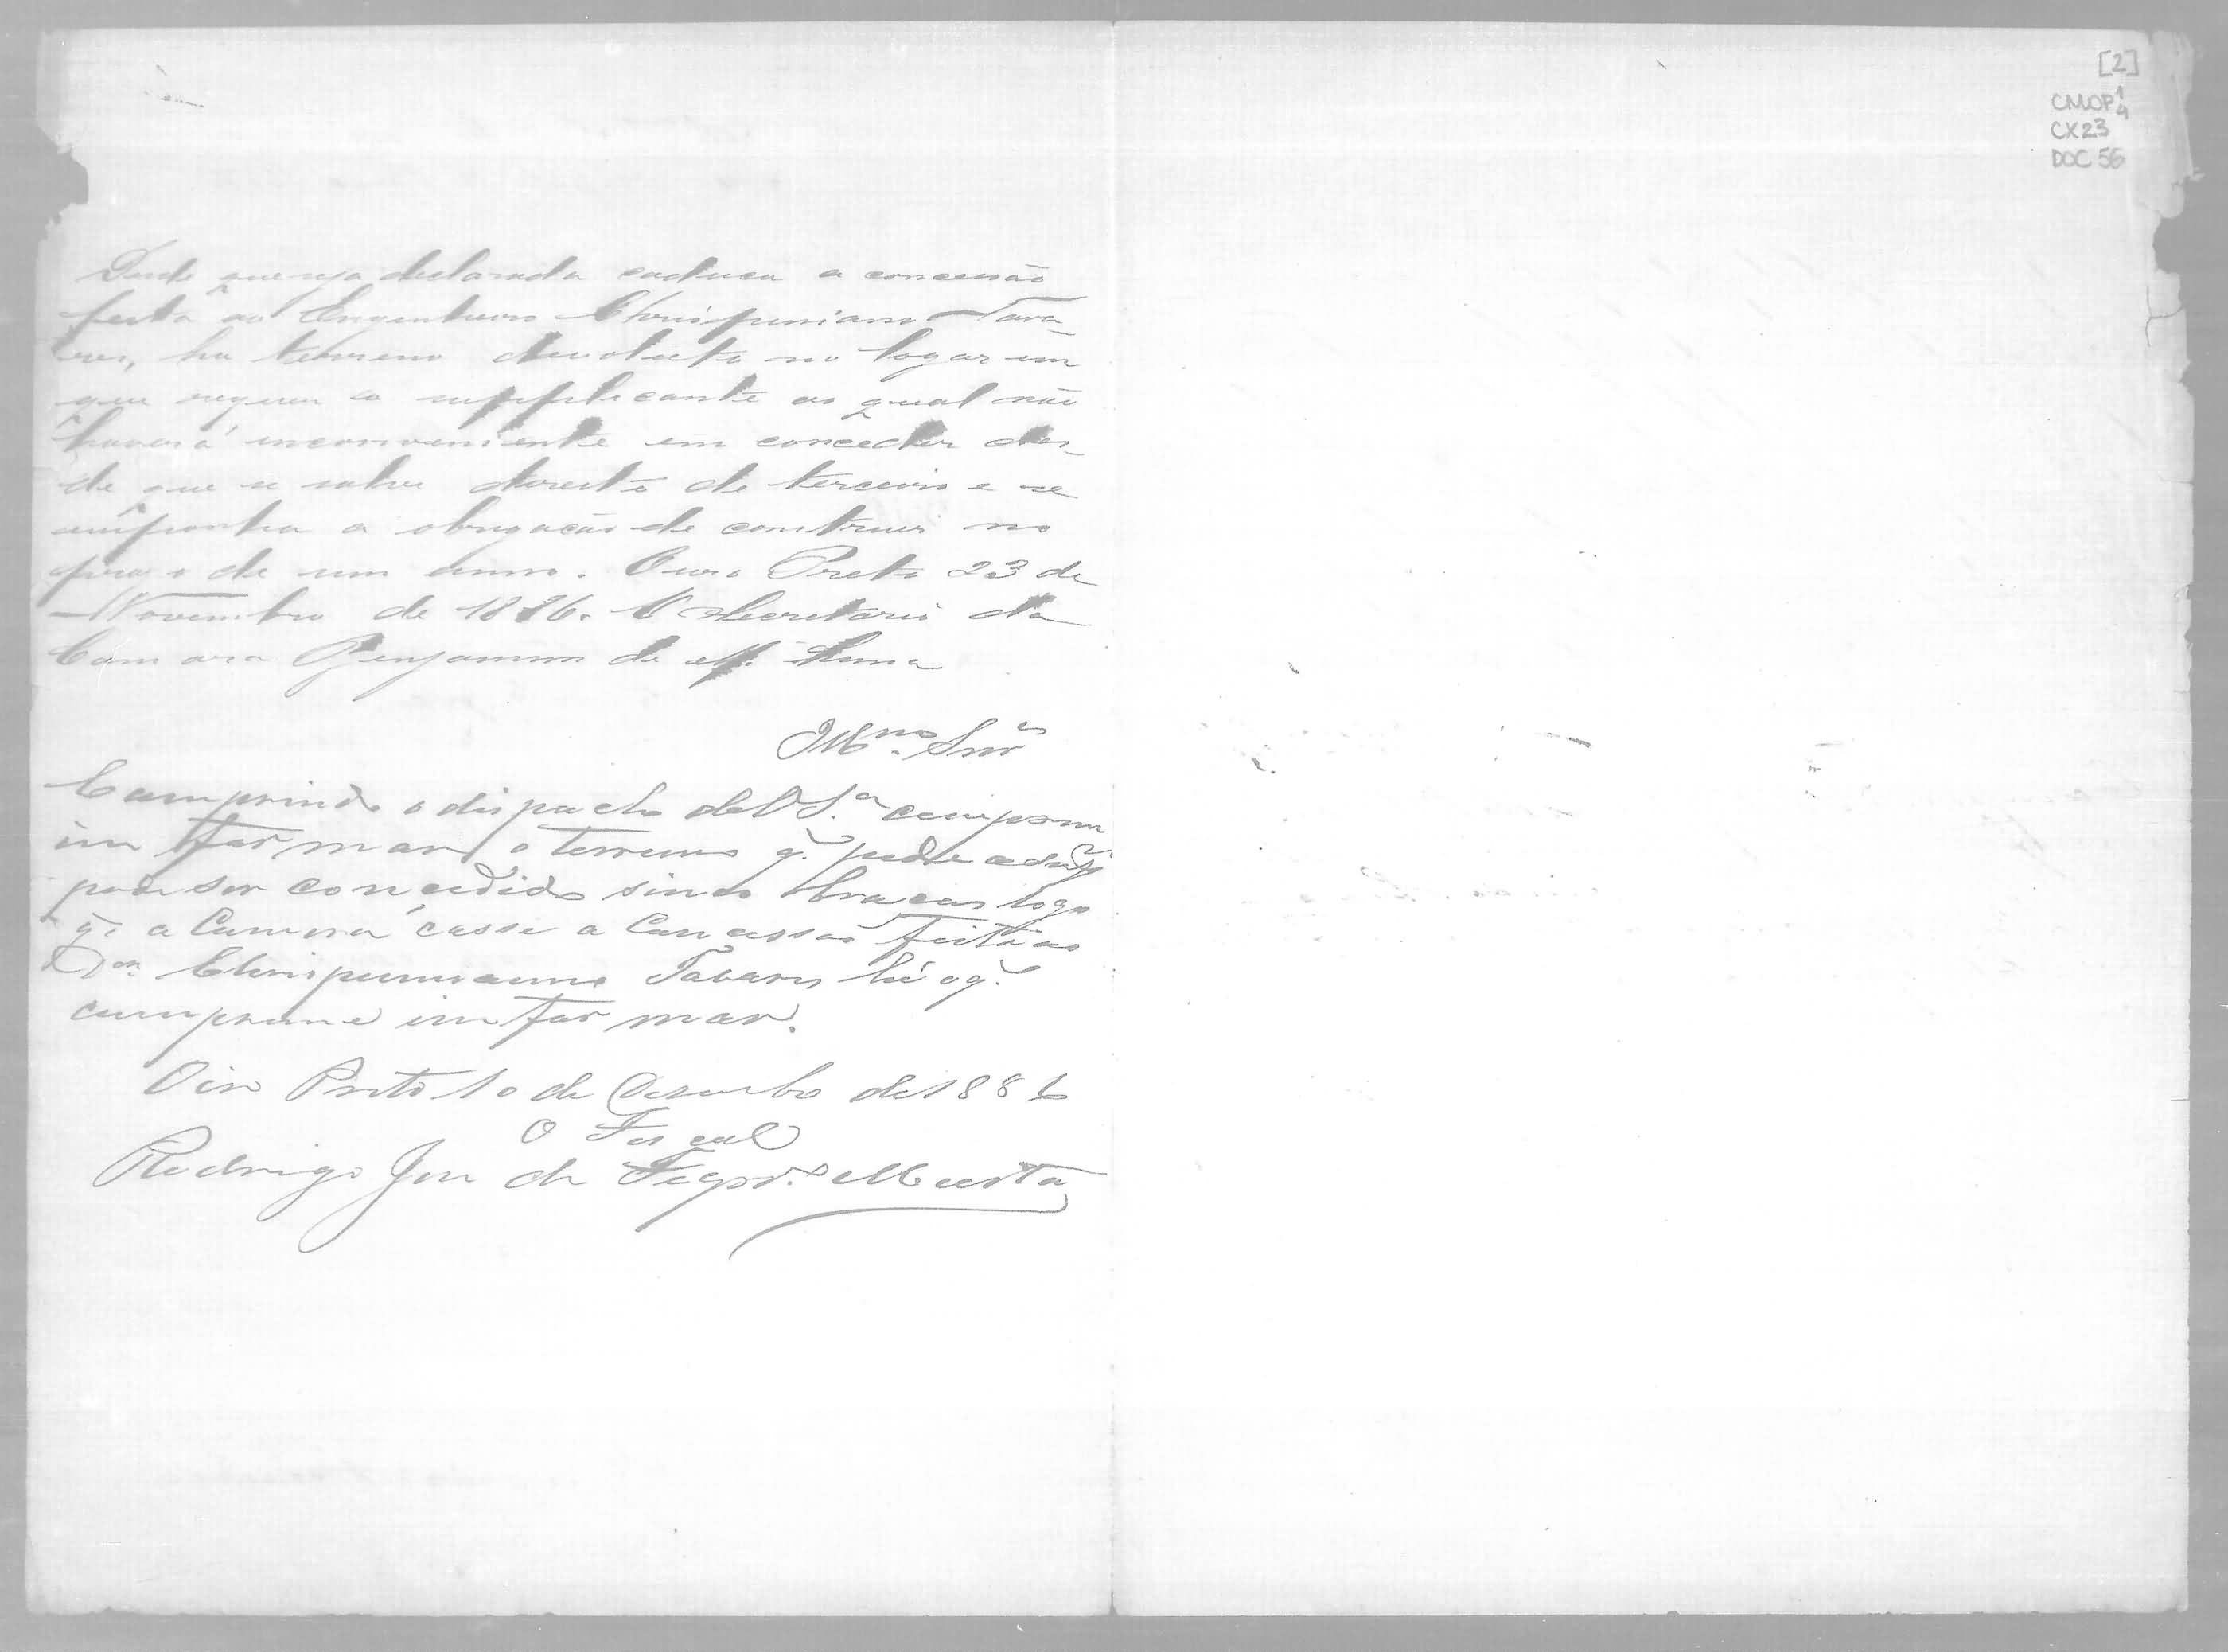 [2]
CMOP 1/4
CX23
DOC 56
Desde que seja declarada caduca a concessão
feita ao Engenheiro Chrispiniano Tava-
res, ha terreno devoluto no logar em
que requer o supplicante ao qual não
haverá inconveniente em conceder des-
de que se salve direito de terceiro e se
imponha a obrigação de construir no
praso de um anno. Ouro Preto 23 de
Novembro de 1886. O Secretario da
Camara Benjamim de M. Lima
Illmos Snres
Comprindo o dispacho de V Sa cumprem
in formar o terreno q. pede
pode ser concedido sinco braças logo
q. a Camara casse a Concessão feita ao
Dor Chrispiniano Tavares hé o q.
cumpreme in for mar.
Oiro Preto 10 de Desembro de 1886
O Fiscal
Rodrigo José de Figdo Murta